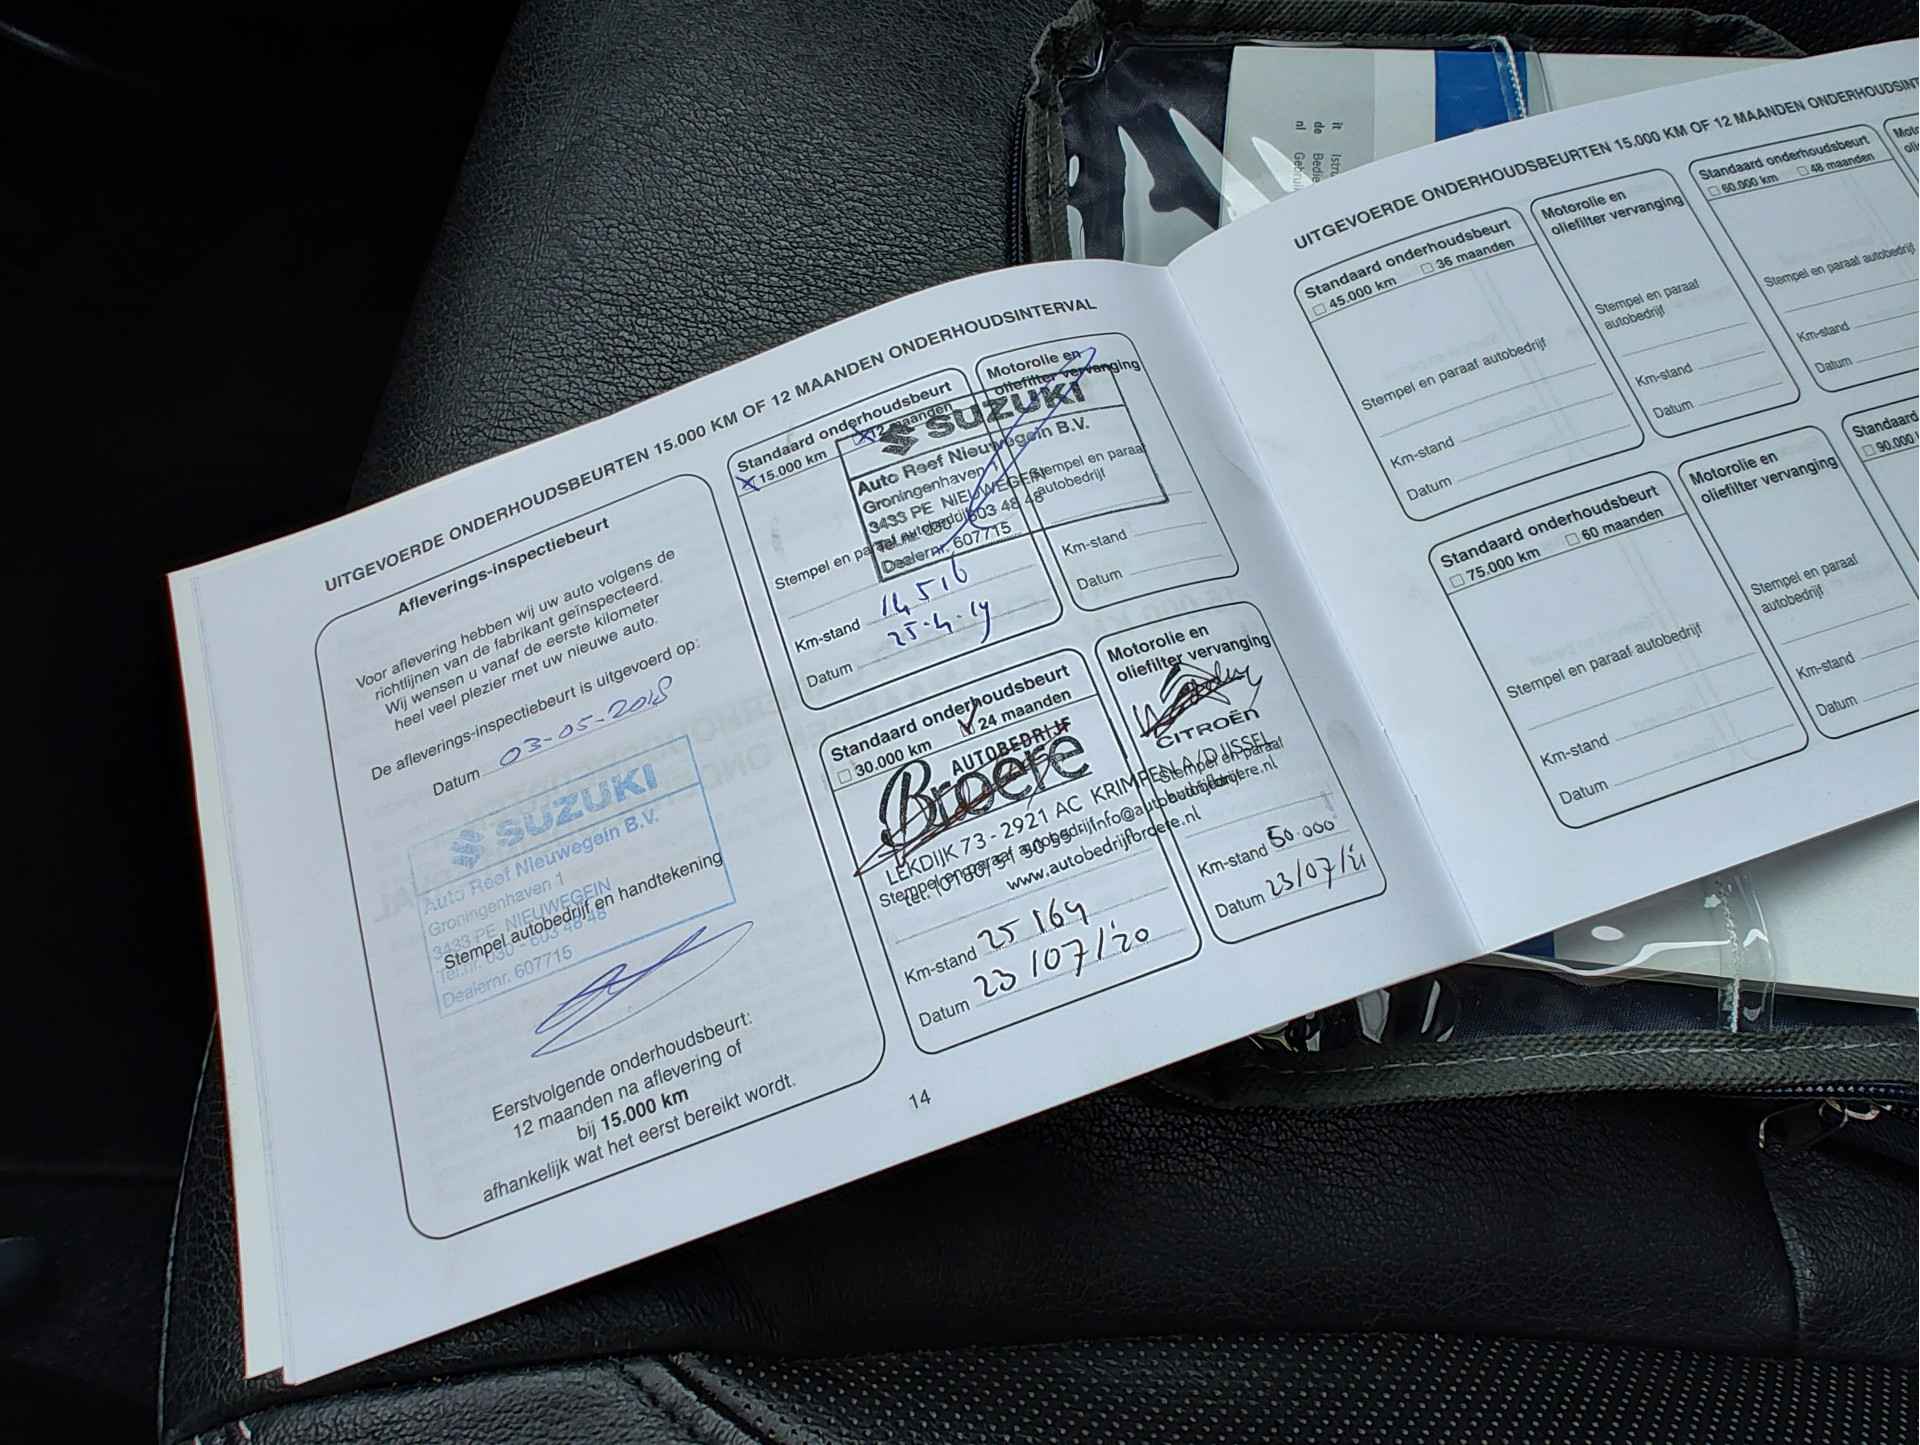 it Istru
de Bedie
nl Gebrui
UITGEVOERDE ONDERHOUDSBEURTEN 15.000 KM OF 12 MAANDEN ONDERHOUDSINTERVAL
Afleverings-inspectiebeurt
Voor aflevering hebben wij uw auto volgens de
richtlijnen van de fabrikant geïnspecteerd.
Wij wensen u vanaf de eerste kilometer
heel veel plezier met uw nieuwe auto.
De afleverings-inspectiebeurt is uitgevoerd op:
Datum 03-05-2018
SUZUKI
Auto Reef Nieuwegein B.V.
Groningenhaven 1
3433 PE NIEUWEGEIN
Tel.nr. 030 - 603 48 48
Dealernr. 607715
Stempel autobedrijf en handtekening
Eerstvolgende onderhoudsbeurt:
12 maanden na aflevering of
bij 15.000 km
afhankelijk wat het eerst bereikt wordt.
Standaard onderhoudsbeurt
15.000 km 12 maanden
SUZUKI
Auto Reef Nieuwegein B.V.
Groningenhaven 1
3433 PE NIEUWEGEIN
Tel.nr. 030 603 48 48
Dealernr. 607715
Stempel en paraaf autobedrijf
Km-stand 14516
Datum 25-4-19
Motorolie en
oliefilter vervanging
Stempel en paraaf
autobedrijf
Km-stand
Datum
Standaard onderhoudsbeurt
30.000 km 24 maanden
AUTOBEDRIJF
Broere
LEKDIJK 73 - 2921 AC KRIMPEN A/D IJSSEL
www.autobedrijfbroere.nl
Stempel en paraaf autobedrijf
Km-stand 25164
Datum 23/07/'20
Motorolie en
oliefilter vervanging
CITROËN
Stempel en paraaf
autobedrijf
Km-stand 50.000
Datum 23/07/'21
14
UITGEVOERDE ONDERHOUDSBEURTEN 15.000 KM OF 12 MAANDEN ONDERHOUDSINT
Standaard onderhoudsbeurt
45.000 km 36 maanden
Stempel en paraaf autobedrijf
Km-stand
Datum
Motorolie en
oliefilter vervanging
Stempel en paraaf
autobedrijf
Km-stand
Datum
Standaard onderhoudsbeurt
60.000 km 48 maanden
Stempel en paraaf autobedrijf
Km-stand
Datum
Moto
olie
Standaard onderhoudsbeurt
75.000 km 60 maanden
Stempel en paraaf autobedrijf
Km-stand
Datum
Motorolie en
oliefilter vervanging
Stempel en paraaf
autobedrijf
Km-stand
Datum
Standaard
90.000